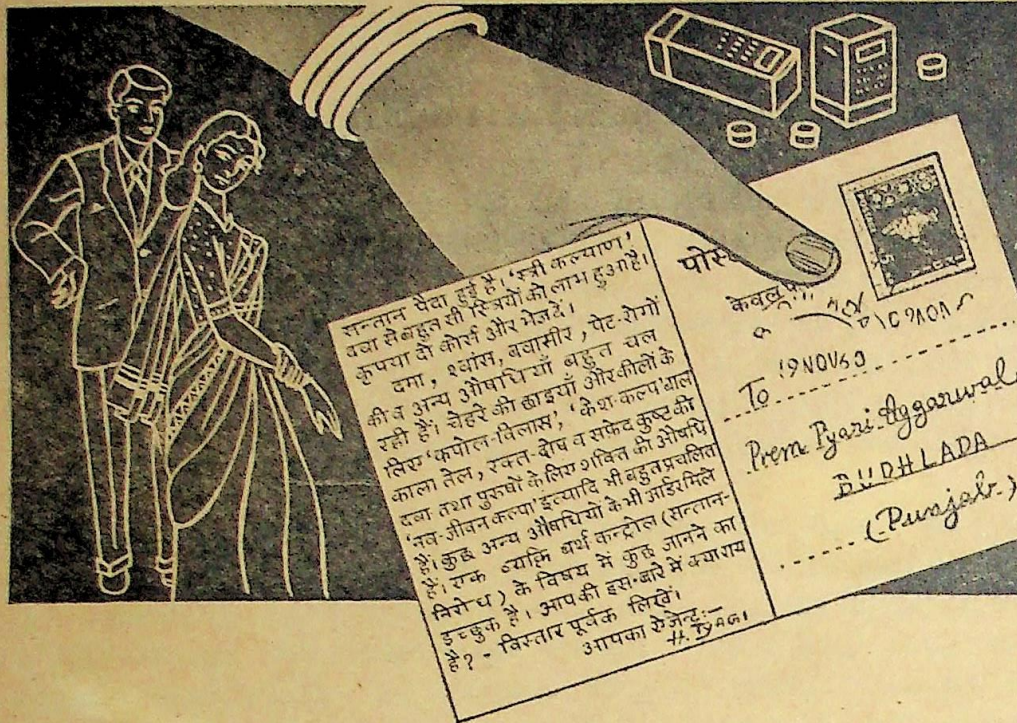 सन्तान पैदा हुई है, 'स्त्री कल्याण'
दवा से बहुत सी स्त्रियों को लाभ हुआ है।
कृपया दो कोर्स और भेज दें।
दमा, श्वांस, बवासीर, पेट-रोगों
की व अन्य औषधियाँ बहुत चल
रही हैं। चेहरे की छाइयाँ और कीलों के
लिए 'कपोल-विलास', 'केश-कल्प' बाल
काला तेल, रक्त-दोष व सफेद कुष्ट की
दवा तथा पुरुषों के लिए शक्ति की औषधि
'नव-जीवन कल्पा' इत्यादि भी बहुत प्रचलित
हैं। कुछ अन्य औषधियों के भी आर्डर मिले
हैं। एक व्यक्ति बर्थ कन्ट्रोल (सन्तान-
निरोध) के विषय में कुछ जानने का
इच्छुक है। आपकी इस बारे में क्या राय
है? - विस्तार पूर्वक लिखें।
आपका ऐजेन्ट:-
H. TYAGI
केवल
19 NOV 60
To
Prem Pyari Aggarwal
BUDHLADA
(Punjab)